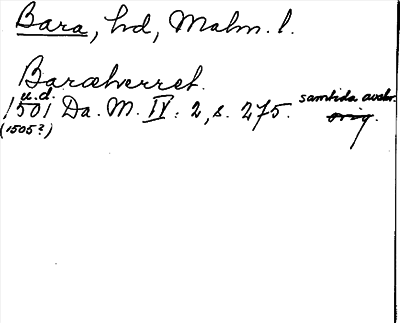 Bara, hd, Malm. l.
Baræherret.
u.d.
1501 Da. M. IV: 2, s. 275. samtida avskr.
(1505?) orig.